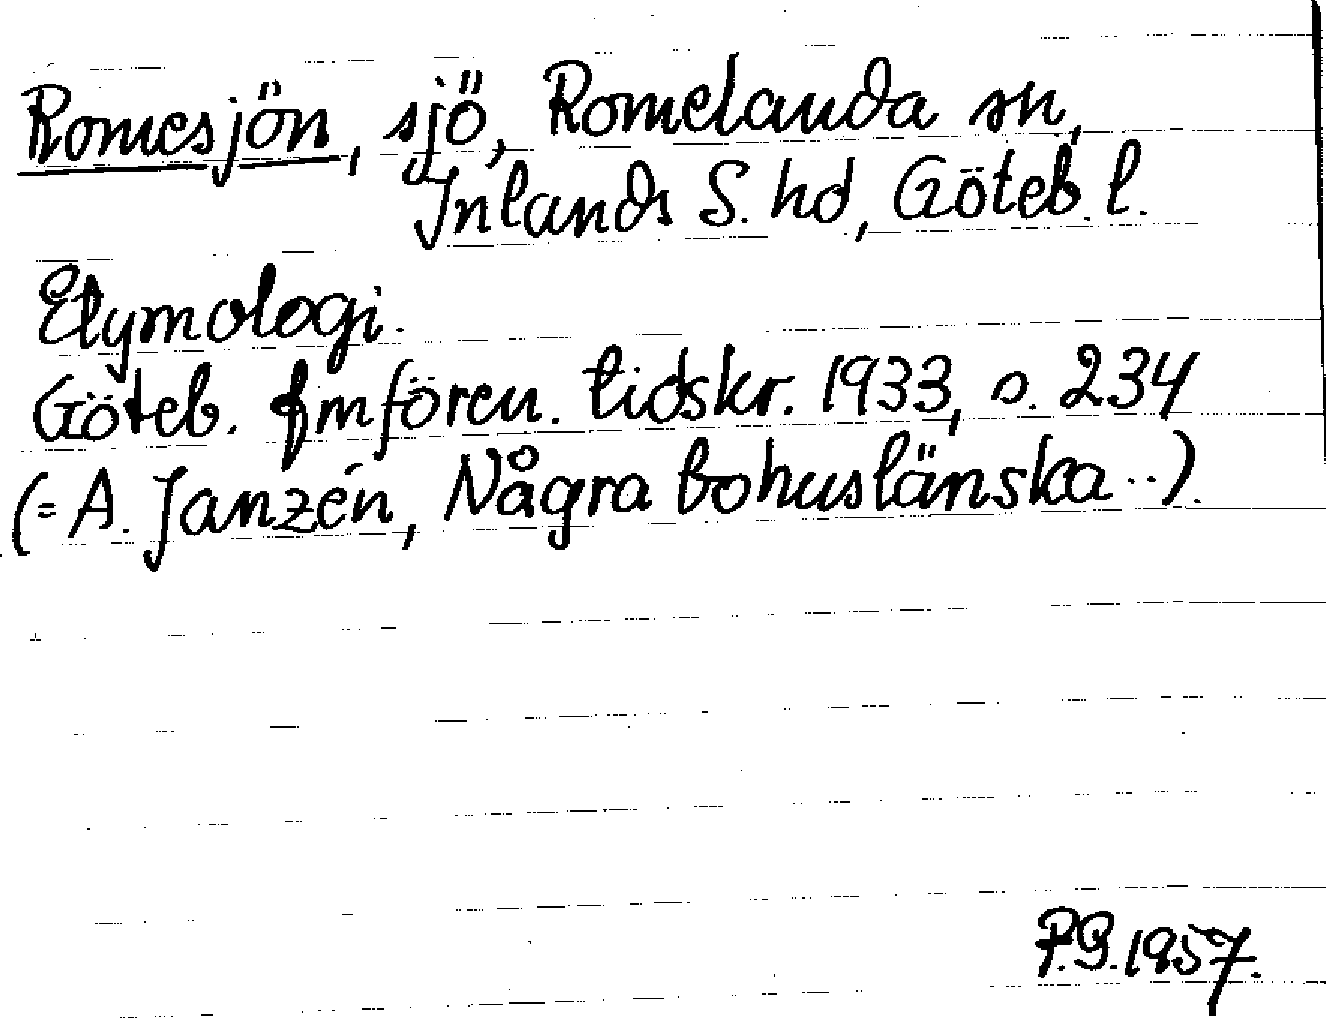 Romesjön, sjö, Romelanda sn,
Inlands S. hd, Göteb. l.
Etymologi.
Göteb. fmfören. tidskr. 1933, s. 234
(= A. Janzén, Några bohuslänska ..).
P.G. 1957.